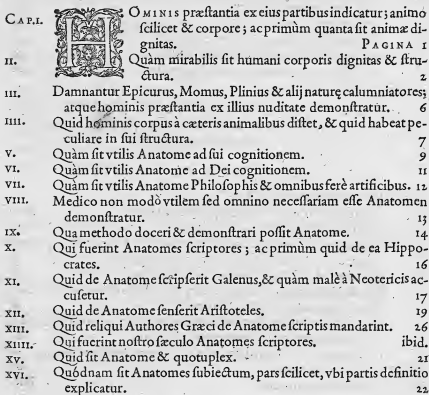 CAP.I. HOMINIS præſtantia ex eius partibus indicatur; animo
ſcilicet & corpore; ac primùm quanta ſit animæ di-
gnitas. PAGINA 1
II. Quàm mirabilis ſit humani corporis dignitas & ſtru-
ctura. 2
III. Damnantur Epicurus, Momus, Plinius & alij naturę calumniatores;
atque hominis præſtantia ex illius nuditate demonſtratur. 6
IIII. Quid hominis corpus à cæteris animalibus diſtet, & quid habeat pe-
culiare in ſui ſtructura. 7
V. Quàm ſit vtilis Anatome ad ſui cognitionem. 9
VI. Quàm ſit vtilis Anatome ad Dei cognitionem. 11
VII. Quàm ſit vtilis Anatome Philoſophis & omnibus ferè artificibus. 12
VIII. Medico non modò vtilem ſed omnino neceſſariam eſſe Anatomen
demonſtratur. 13
IX. Qua methodo doceri & demonſtrari poſſit Anatome. 14
X. Qui fuerint Anatomes ſcriptores; ac primùm quid de ea Hippo-
crates. 16
XI. Quid de Anatome ſcripſerit Galenus, & quàm malè à Neotericis ac-
cuſetur. 17
XII. Quid de Anatome ſenſerit Ariſtoteles. 19
XIII. Quid reliqui Authores Græci de Anatome ſcriptis mandarint. 26
XIIII. Qui fuerint noſtro ſæculo Anatomes ſcriptores. ibid.
XV. Quid ſit Anatome & quotuplex. 21
XVI. Quódnam ſit Anatomes ſubiectum, pars ſcilicet, vbi partis definitio
explicatur. 22